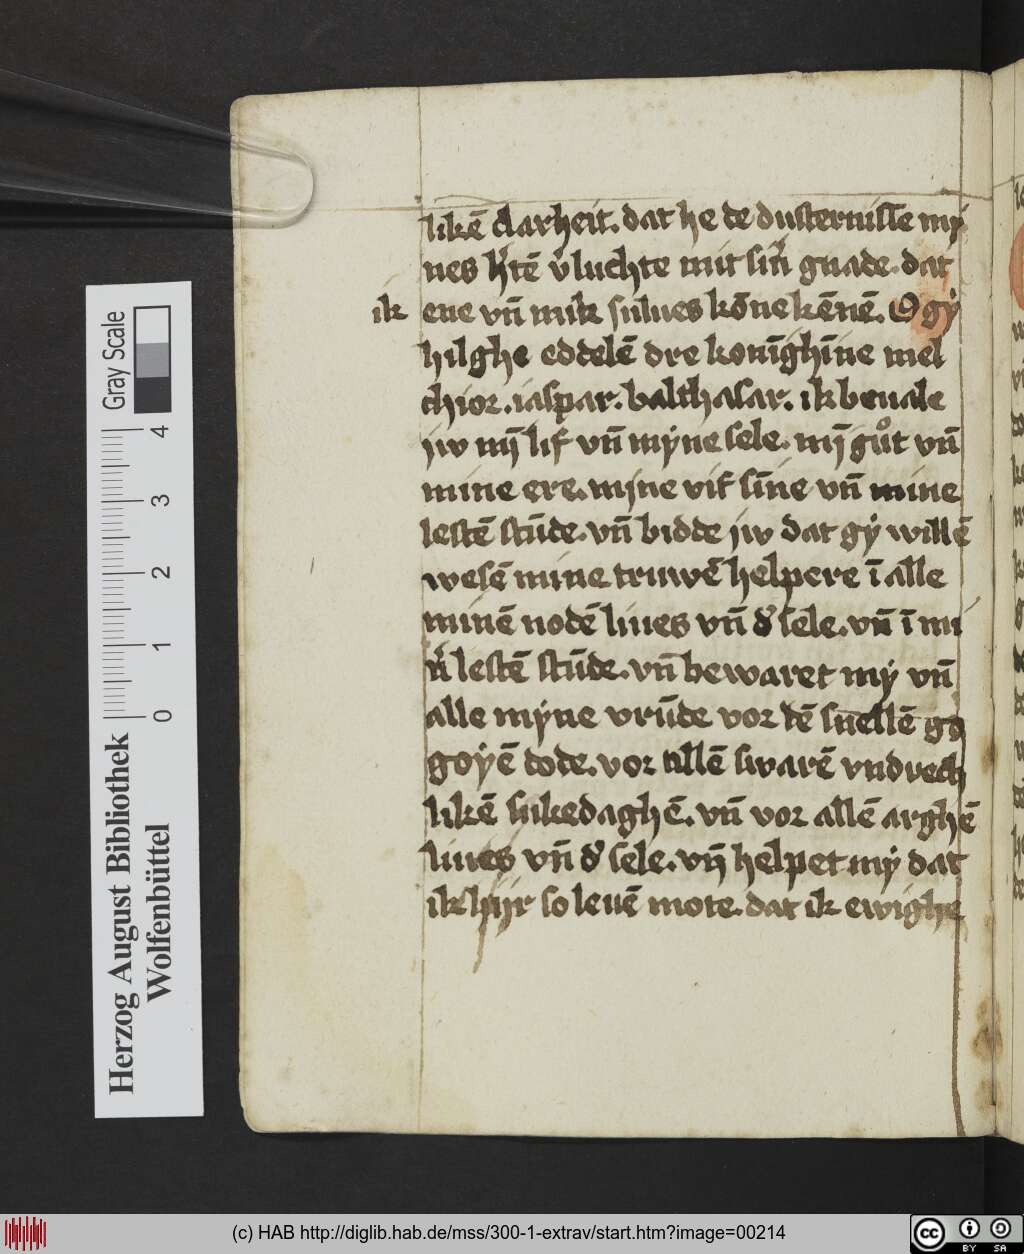 likē clarheit. dat he de dusternisse my
nes h'tē v'luchte mit sin' gnade. dat
ik ene vn̄ mik sulues kōne kēnē. O gÿ
hilghe eddelē dre konīghīne mel
chior. iaspar. balthasar. ik beuale
jw mȳ lif vn̄ mÿne sele. mȳ guͦt vn̄
mine ere. mine vif sīne vn̄ mine
lestē stūde. vn̄ bidde jw dat gÿ willē
wesē mine truwē helpere ī alle
minē nodē liues vn̄ d' sele. vn̄ ī mi
n' lestē stūde. vn̄ bewaret mÿ vn̄
alle mÿne vrūde vor dē snellē
goÿē dode. vor allē swarē vnd vech
likē sukedaghē. vn̄ vor allē arghē
liues vn̄ d' sele. vn̄ helpet mÿ dat
ik hijr so leuē mote. dat ik ewighe
Gray Scale
4
3
2
1
0
Herzog August Bibliothek
Wolfenbüttel
(c) HAB http://diglib.hab.de/mss/300-1-extrav/start.htm?image=00214
cc
BY SA